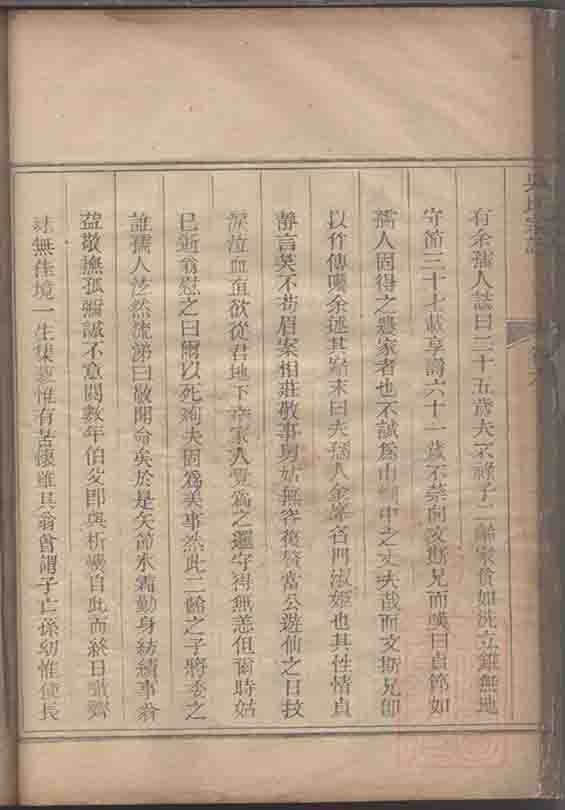 吳氏宗譜
有余孺人誌曰三十五歲夫不祿子二齠家貧如洗立錐無地
守節三十七載享壽六十一歲不禁向文斯兄而嘆曰貞節如
孺人固得之農家者也不誠為巾幗中之丈夫哉而文斯兄即
以作傳囑余述其始末曰夫孺人金 名門淑姬也其性情貞
靜言笑不苟眉案相莊敬事舅姑無容後贅當公遊仙之日技
淚泣血直欲從君地下幸家人覺為之邏守得無恙但爾時姑
已逝翁慰之曰爾以死殉夫固為美事然此二齠之子將委之
誰孺人泫然流涕曰敬聞命矣於是矢節冰霜勤身紡績事翁
益敬撫孤彌誠不意閱數年伯叟即與析爨自此而終日虀齏
味無佳境一生集蓼惟有苦懷雖其翁曾謂子亡孫幼惟使長